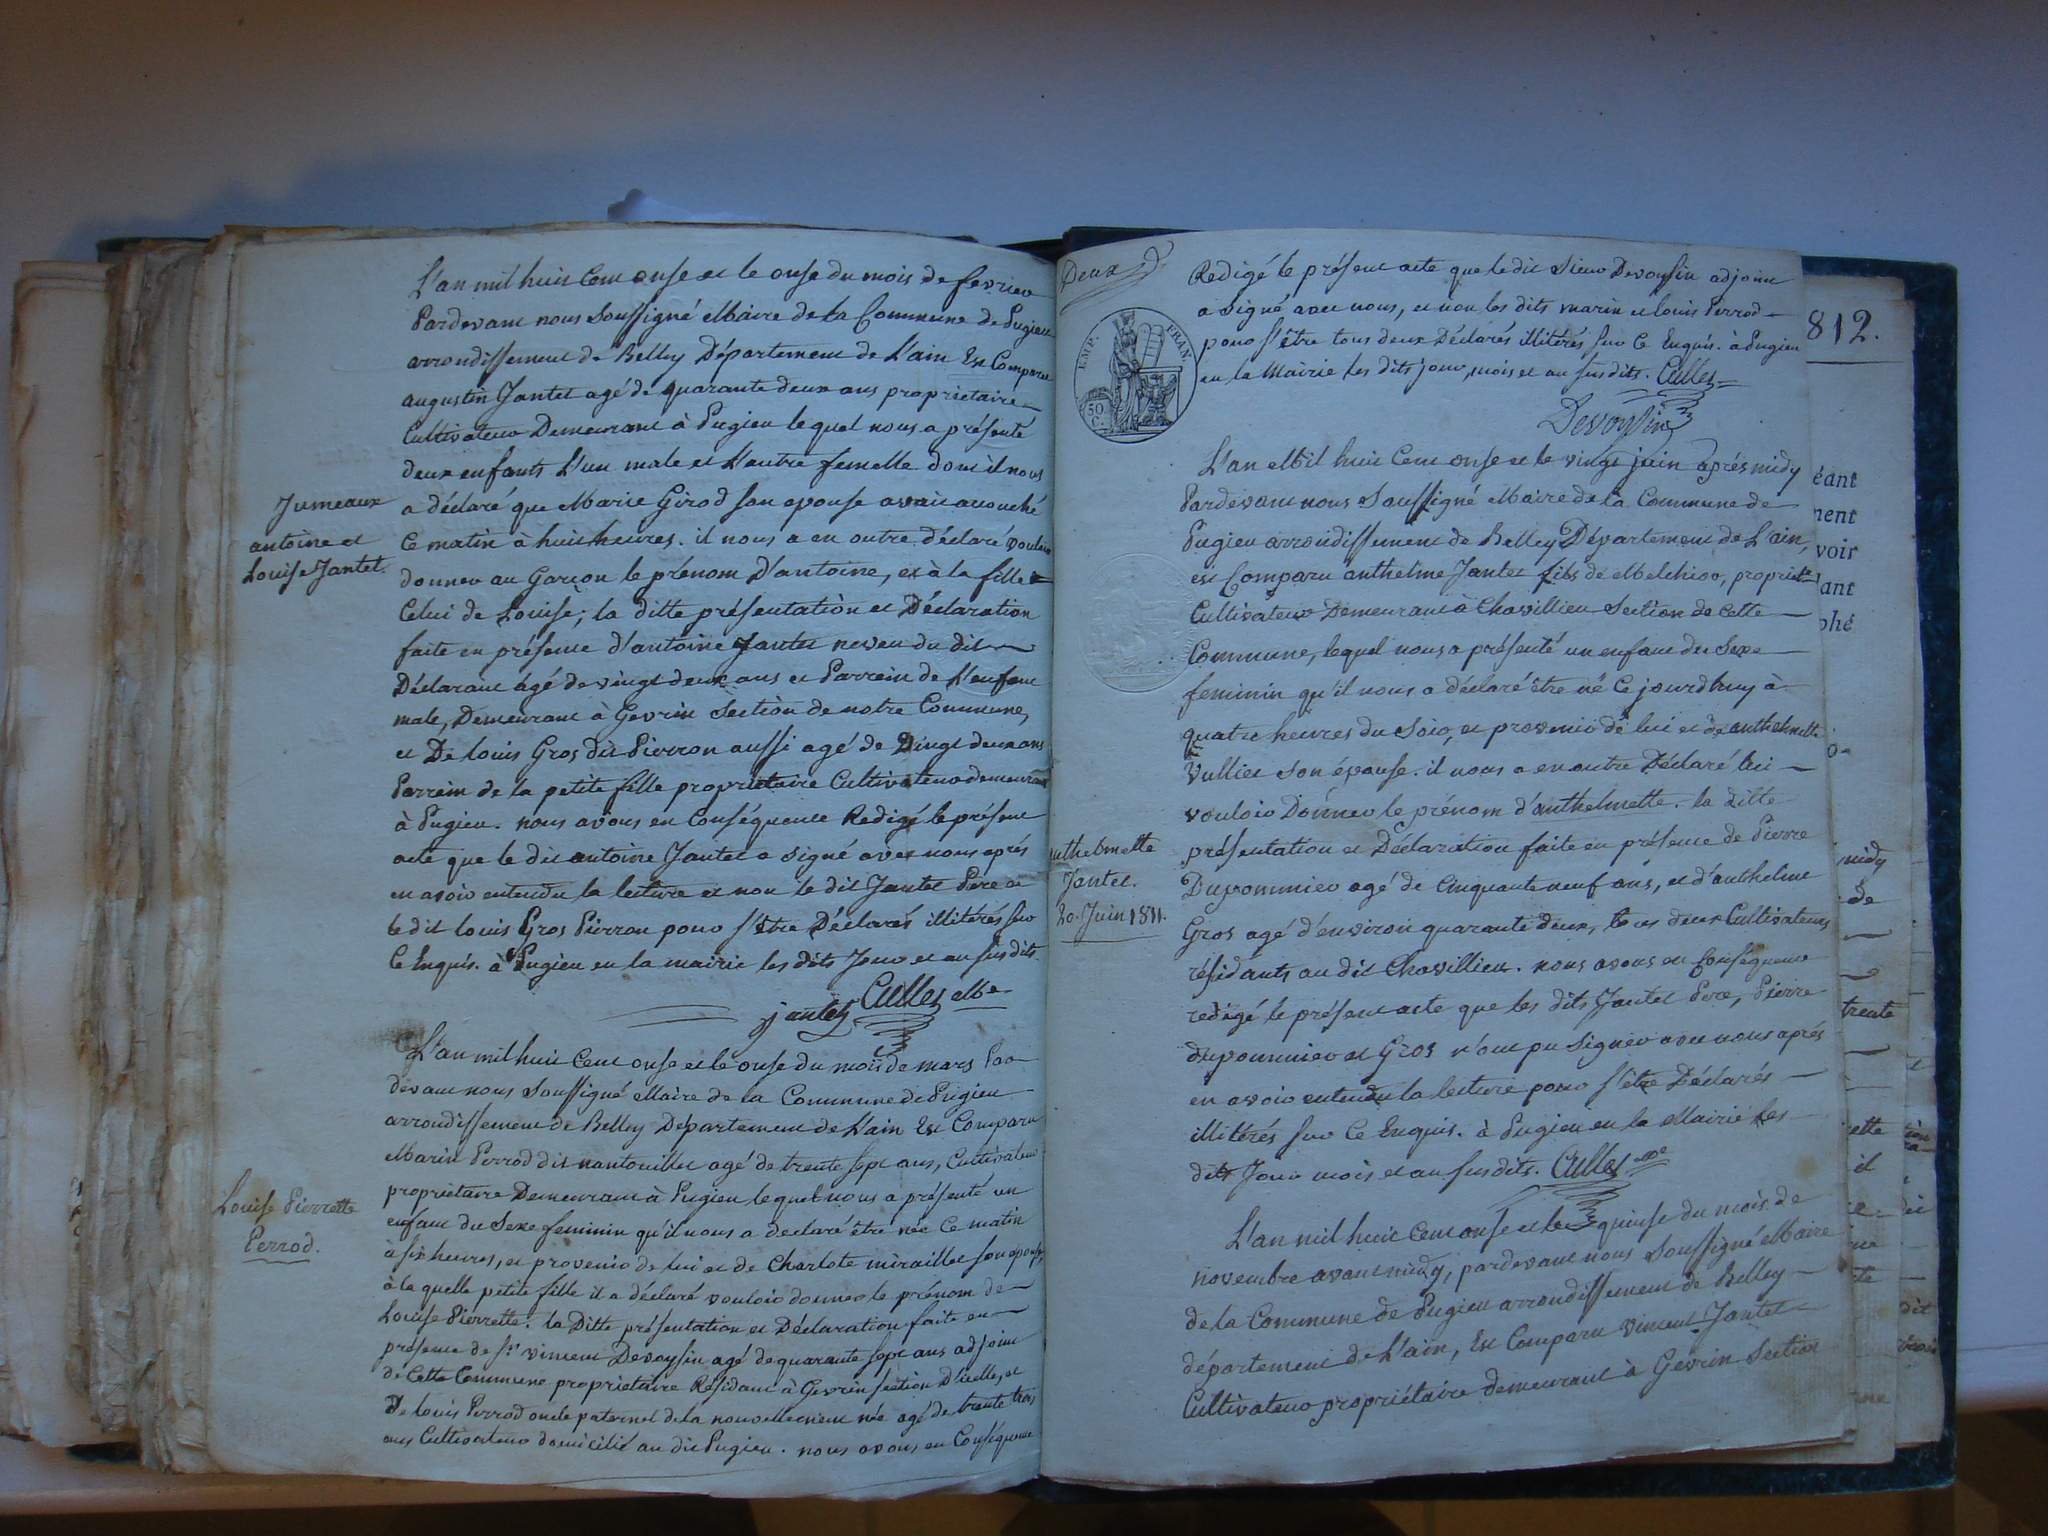 L'an mil huit Cent onse et le onse du mois de fevrier
Pardevant nous Soussigné Maire de la Commune de Pugieu
arrondissement de Belley Département de L'ain Est Comparu
augustin Jantet agé de quarante deux ans proprietaire
Cultivateur Demeurant à Pugieu lequel nous a présenté
deux enfants L'un male et L'autre femelle dont il nous
a déclaré que Marie Girod son epouse avait accouché
Ce matin à huit heures. il nous a en outre déclaré vouloir
donner au Garçon le prénom D'antoine, et à la fille
Celui de Louise; la ditte présentation et Déclaration
faite en présence d'antoine Jantet neveu du dit
Déclarant âgé de vingt deux ans et Parrein de L'enfant
male, Demeurant à Gevrin Section de notre Commune,
et De Louis Gros dit Pierron aussi agé de Vingt deux ans
Parrein de la petite fille proprietaire Cultivateur demeurant
à Pugieu. nous avons en Conséquence Redigé le présent
acte que le dit antoine Jantet a signé avec nous après
en avoir entendu la lecture et non le dit Jantet Pere et
le dit Louis Gros Pierron pour s'être Déclarés illitérés sur
Ce Enquis. à Pugieu en la mairie les dits Jour et an susdits.
jantet Cullet Me
Jumeaux
antoine et
Louise Jantet.
L'an mil huit Cent onse et le onse du mois de mars Par
devant nous Soussigné Maire de la Commune de Pugieu
arrondissement de Belley Département de L'ain Est Comparu
Marin Perrod dit nantouillet agé de trente sept ans, Cultivateur
proprietaire Demeurant à Pugieu lequel nous a présenté un
enfant du Sexe feminin qu'il nous a declaré être née Ce matin
à six heures, et provenir de lui et de Charlote miraillet son epouse,
à la quelle petite fille il a déclaré vouloir donner le prénom de
Louise Pierrette. la Ditte présentation et Déclaration faite en
présence de Sr. vincent Devoysin agé de quarante sept ans adjoint
de Cette Commune proprietaire Résidant à Gevrin section D'icelle, et
De Louis Perrod oncle paternel de la nouvellement née agé de trente trois
ans Cultivateur domicilié au dit Pugieu. nous avons en Conséquence
Louise Pierrette
Perrod.
Deux
EMP. FRAN.
50
C.
Redigé le présent acte que le dit Sieur Devoysin adjoint
a Signé avec nous, et non les dits marin et louis Perrod
pour s'être tous deux Déclarés illitérés sur Ce Enquis. à Pugieu
en la Mairie les dits jour, mois et an susdits. Cullet
Devoysin
L'an Mil huit Cent onse et le vingt juin après midy
Pardevant nous Soussigné Maire de la Commune de
Pugieu arrondissement de Belley Département de L'ain,
est Comparu anthelme Jantet fils de Melchior, propriete
Cultivateur Demeurant à Chavillieu Section de Cette
Commune, lequel nous a présenté un enfant du Sexe
feminin qu'il nous a déclaré être né Ce jourdhuy à
quatre heures du Soir, et provenir de lui et de anthelmette
Vulliet son épouse. il nous a en outre Déclaré lui
vouloir Donner le prénom d'anthelmette. la ditte
présentation et Déclaration faite en présence de Pierre
Dupommier agé de Cinquante neuf ans, et d'anthelme
Gros agé d'environ quarante deux, tous deux Cultivateurs
résidants au dit Chavillieu. nous avons en Conséquence
redigé le présent acte que les dits Jantet Pere, Pierre
dupommier et Gros n'ont pu Signer avec nous après
en avoir entendu la lecture pour s'être Déclarés
illitérés sur Ce Enquis. à Pugieu en la Mairie les
dits Jour mois et an susdits. Cullet Me
anthelmette
Jantet.
20. Juin 1811.
L'an mil huit Cent onse et le quinse du mois de
novembre avant midy, pardevant nous Soussigné Maire
de la Commune de Pugieu arrondissement de Belley
département de L'ain, Est Comparu vincent Jantet
Cultivateur propriétaire demeurant à Gevrin Section
812.
éant
ment
voir
lant
phé
midy
de
trente
ette
il